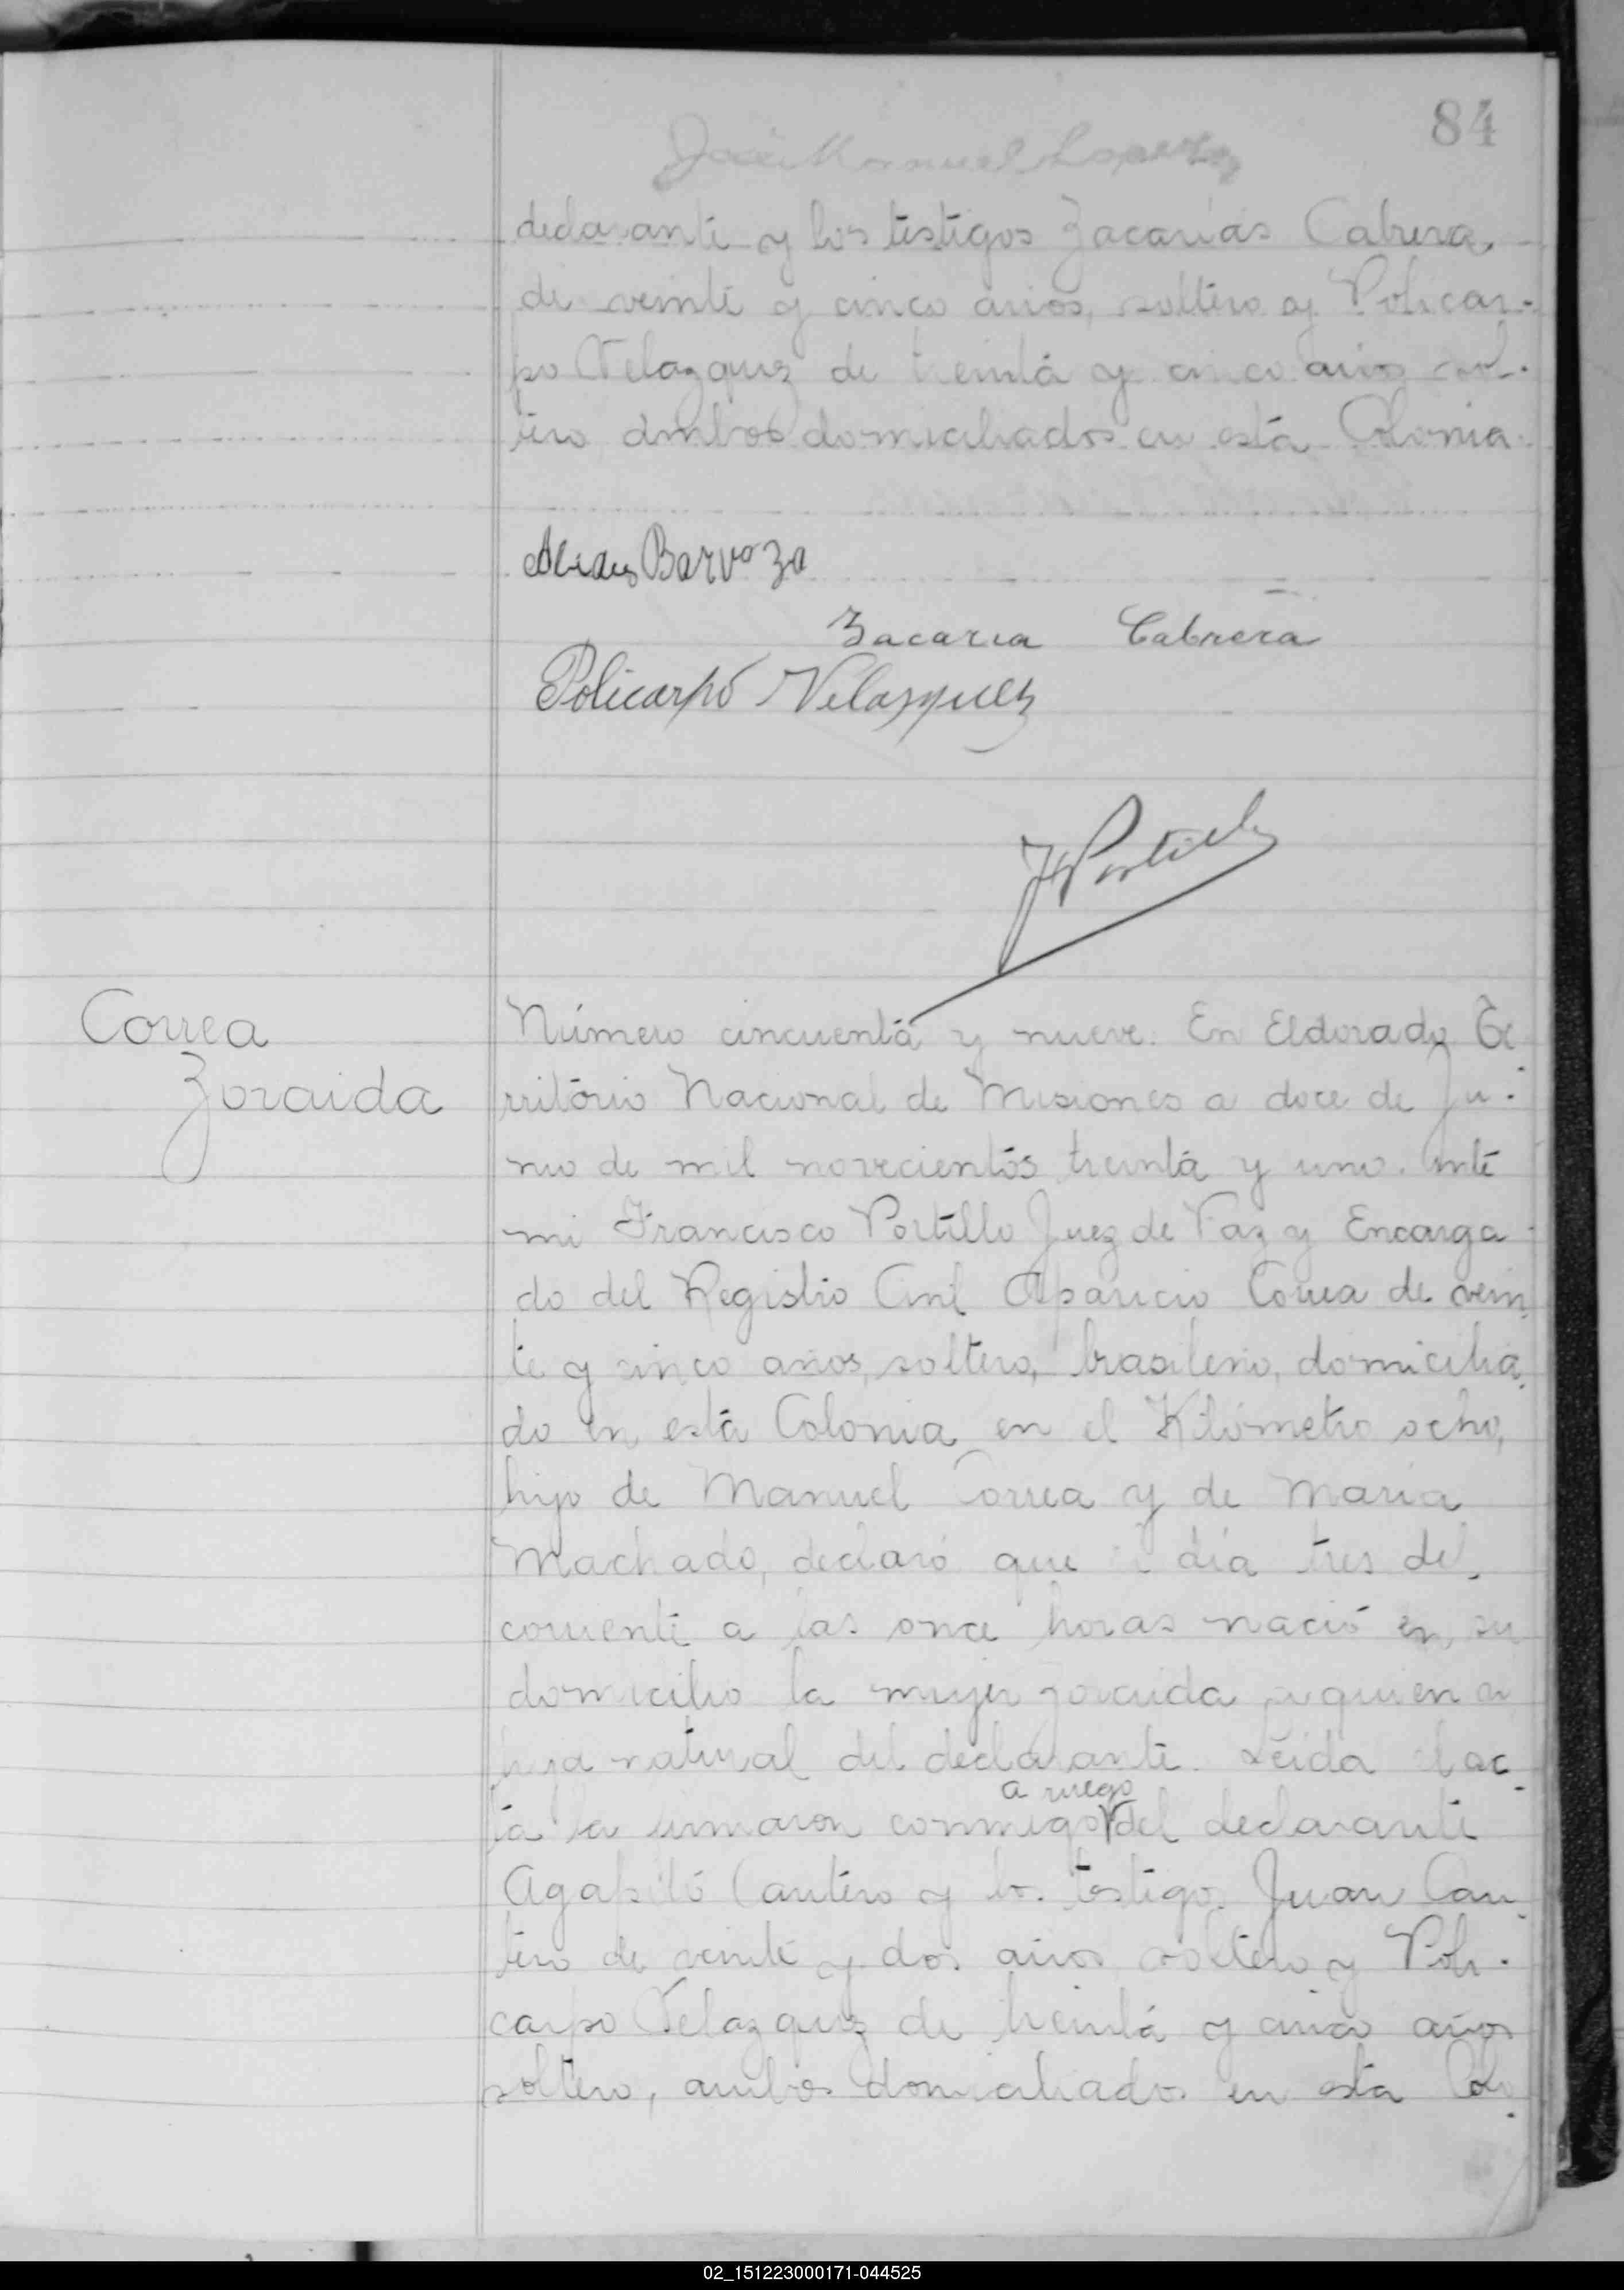 84
José Manuel Lopez
declarante y los testigos Zacarías Cabrera
de veinte y cinco años, soltero y Policar-
po Velazquez de treinta y cinco años sol-
tero ambos domiciliados en esta Colonia.
Barvoza
Zacaria Cabrera
Policarpo Velasquez
FPortillo
Correa
Zoraida
Número cincuenta y nueve. En Eldorado Te
rritorio Nacional de Misiones a doce de Ju-
nio de mil novecientos treinta y uno. Ante
mi Francisco Portillo Juez de Paz y Encarga-
do del Registro Civil Aparicio Correa de vein
te y cinco años, soltero, brasileno, domicilia
do en esta Colonia en el Kilómetro ocho,
hijo de Manuel Correa y de María
Machado, declaró que el día tres del
corriente a las once horas nació en su
domicilio la mujer Zoraida quien es
hija natural del declarante. Leida el ac-
a ruego
ta la firmaron conmigo del declarante
Agapito Cantero y los testigos Juan Can
tero de veinte y dos años soltero y Poli-
carpo Velazquez de treinta y cinco años
soltero, ambos domiciliados en esta Colo
02_151223000171-044525